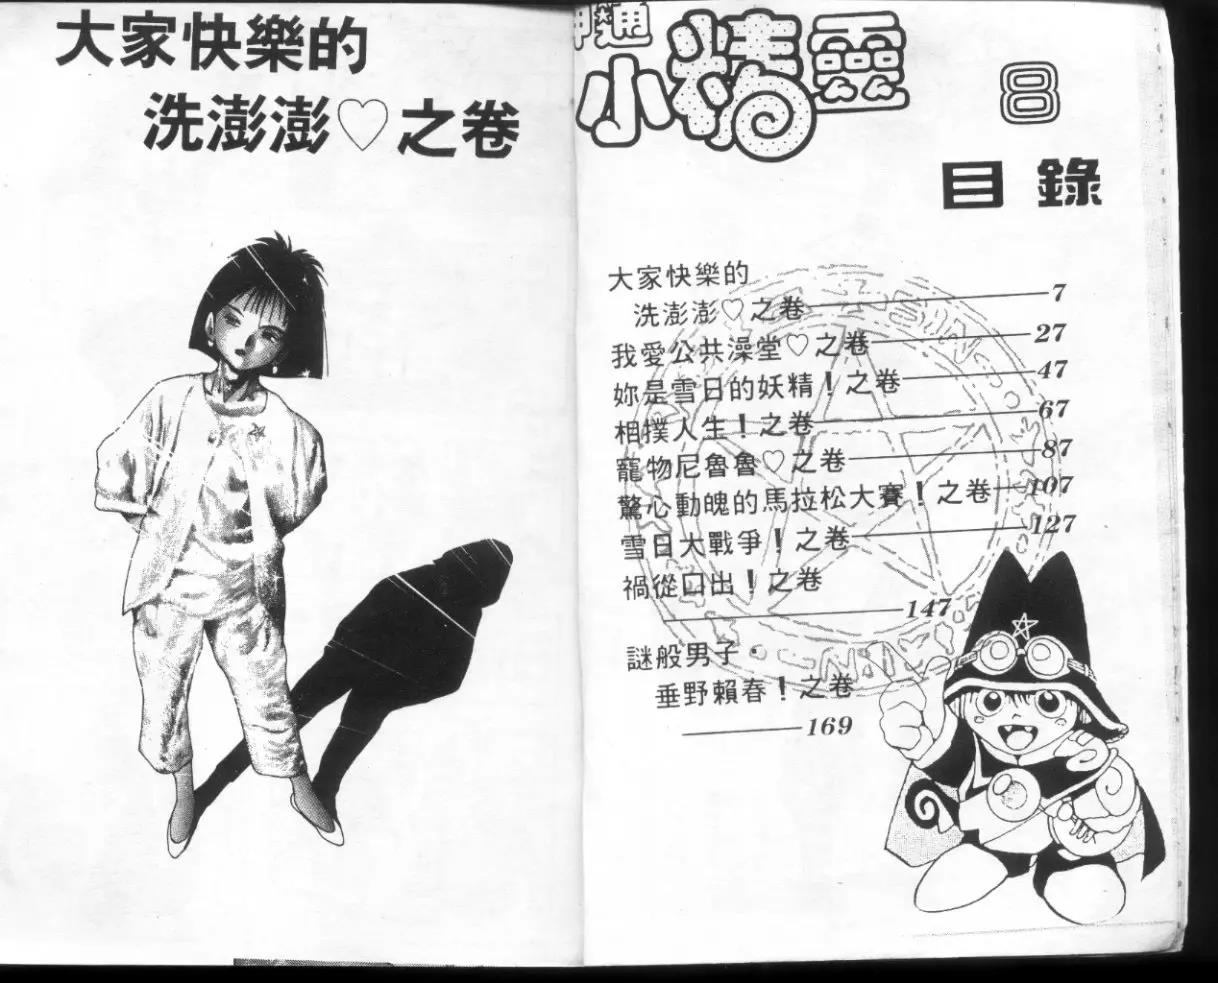 大家快樂的
洗澎澎♡之卷
神通
小精靈
8
目錄
大家快樂的
洗澎澎♡之卷 7
我愛公共澡堂♡之卷 27
妳是雪日的妖精！之卷 47
相撲人生！之卷 67
寵物尼魯魯♡之卷 87
驚心動魄的馬拉松大賽！之卷 107
雪日大戰爭！之卷 127
禍從口出！之卷
147
謎般男子・
垂野賴春！之卷
169